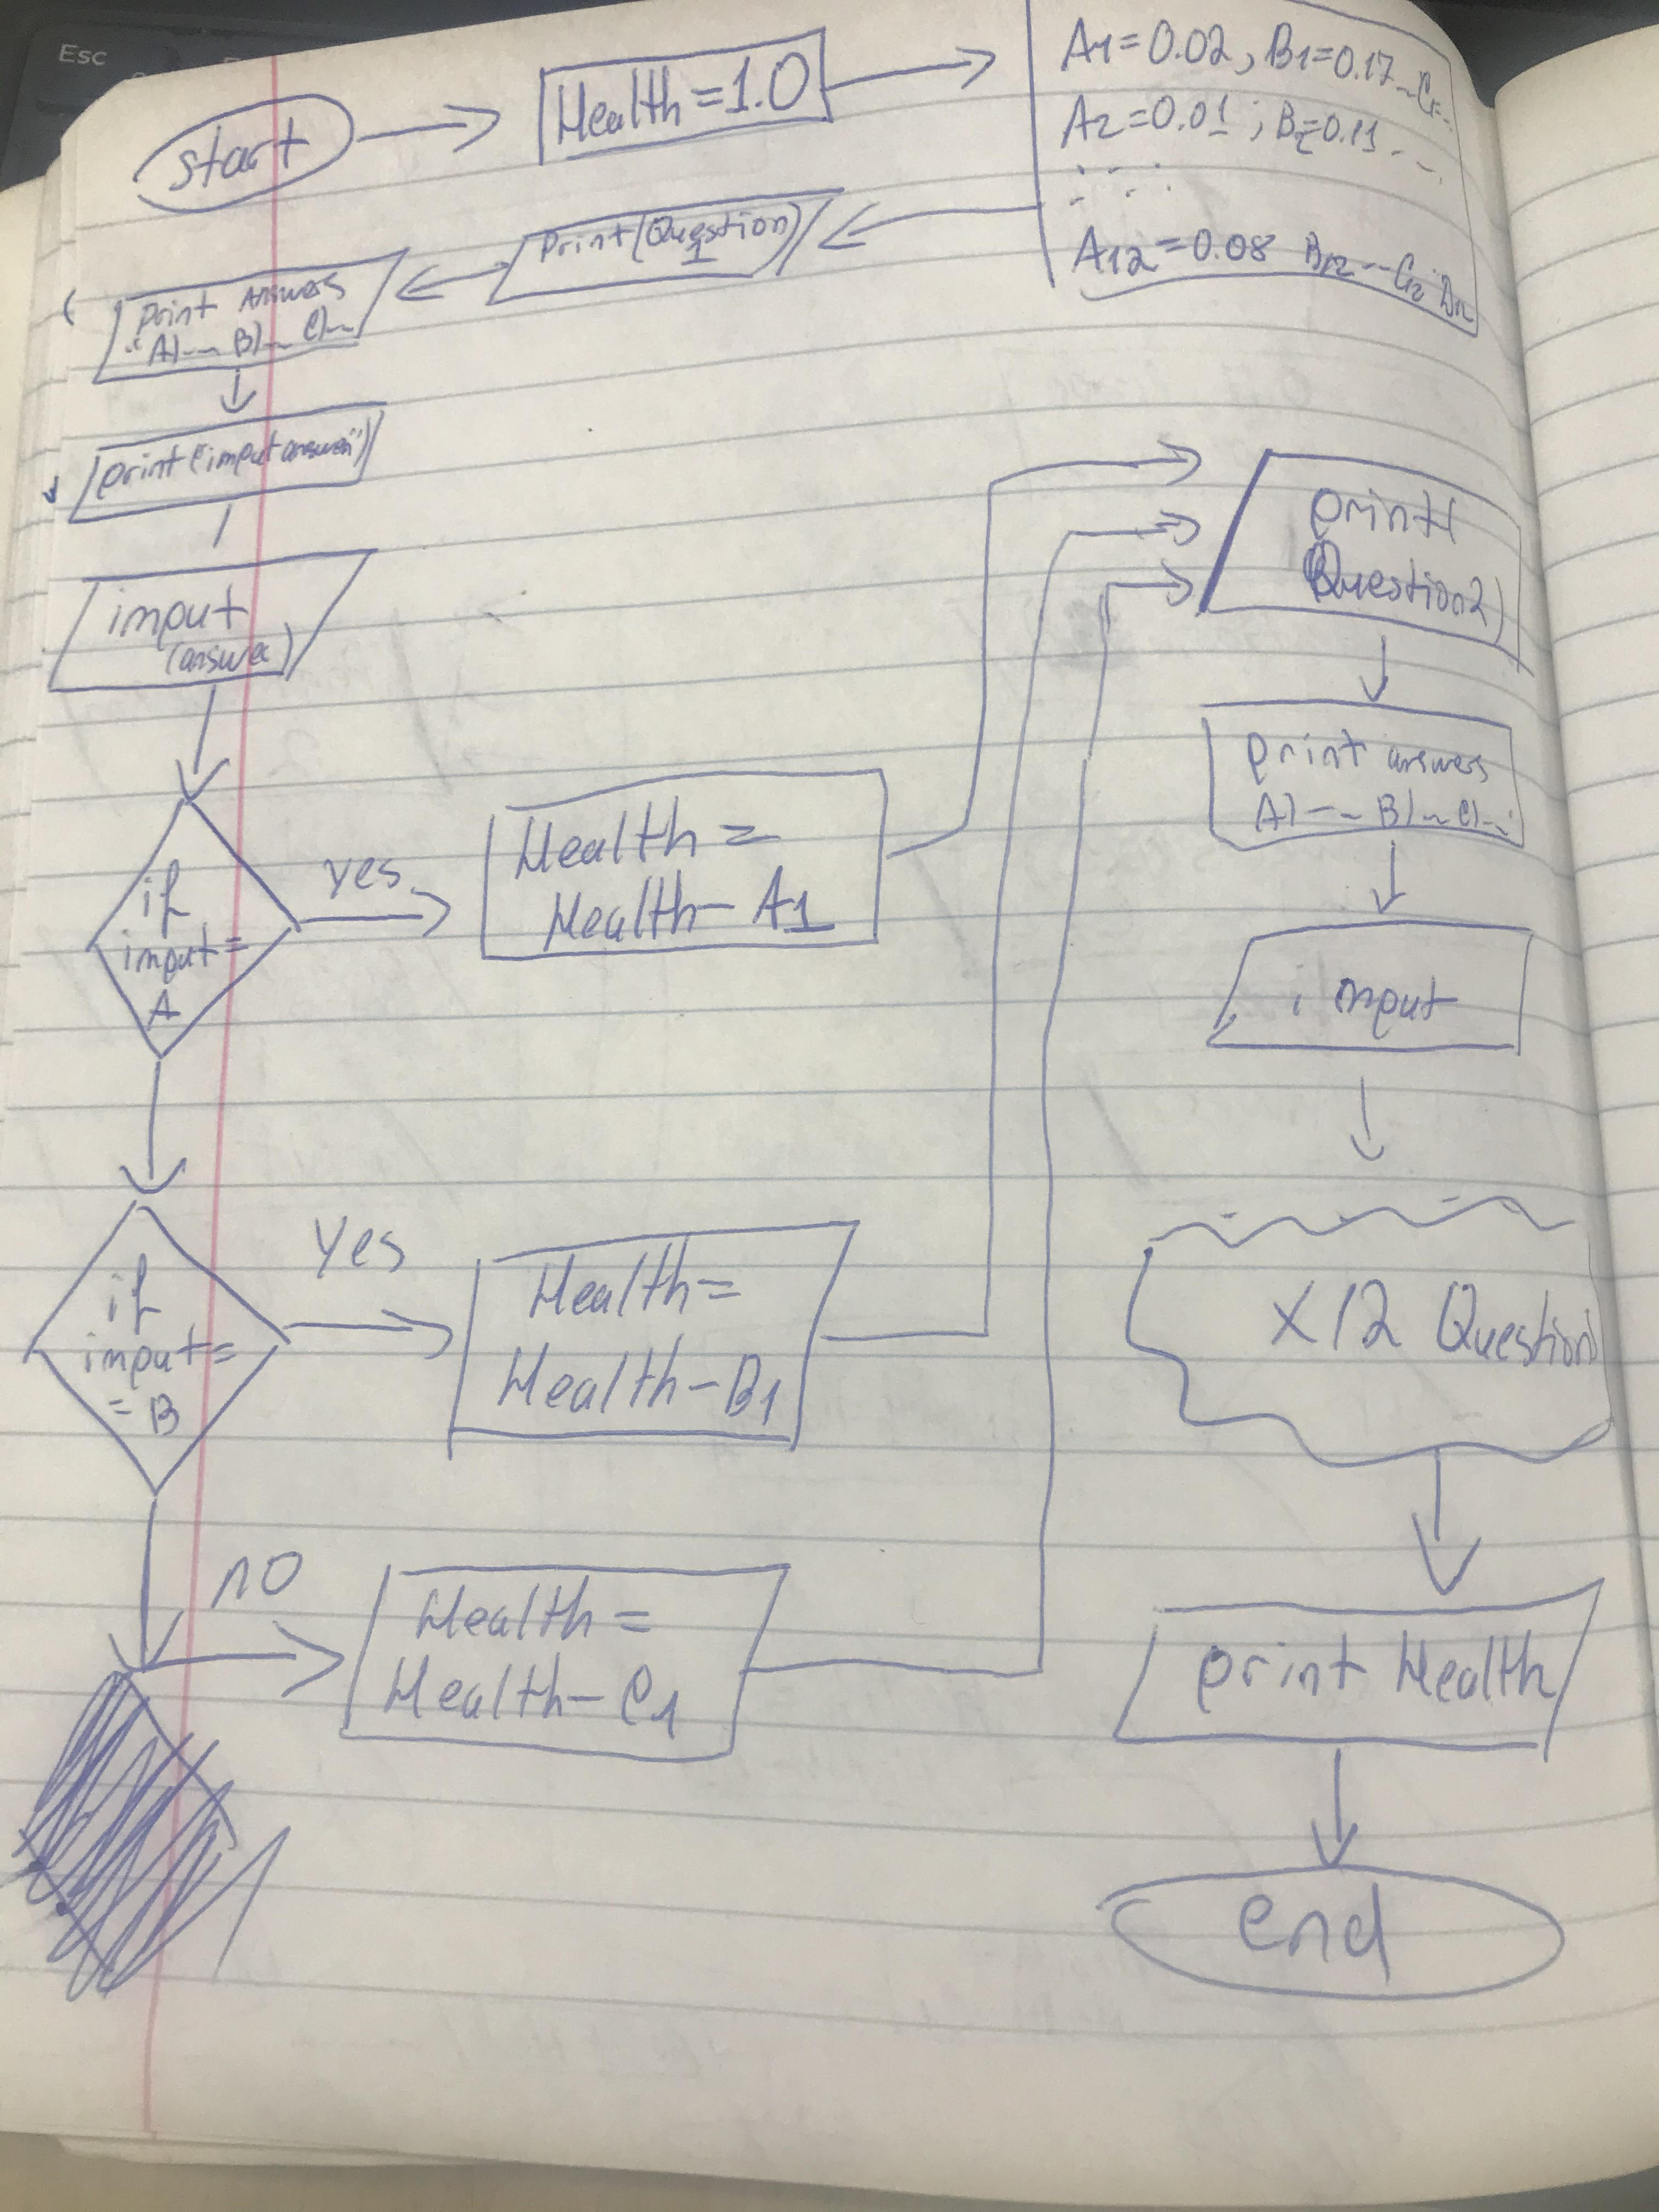 Esc
start
Health = 1.0
A1 = 0.02, B1 = 0.17 -- C1= --
A2 = 0.01 ; B2 = 0.11 . --
A12 = 0.08 B12 -- C12 D12
Print(Question
1)
print Answers
"A)--- B)-- C)--
print ("input answer")
input
(answer)
if
input =
A
yes
Health =
Health - A1
if
input =
= B
Yes
Health =
Health - B1
no
Health =
Health - C1
print(
Question2)
print answers
A) -- B)-- C)--
input
x12 Questions
print Health
end